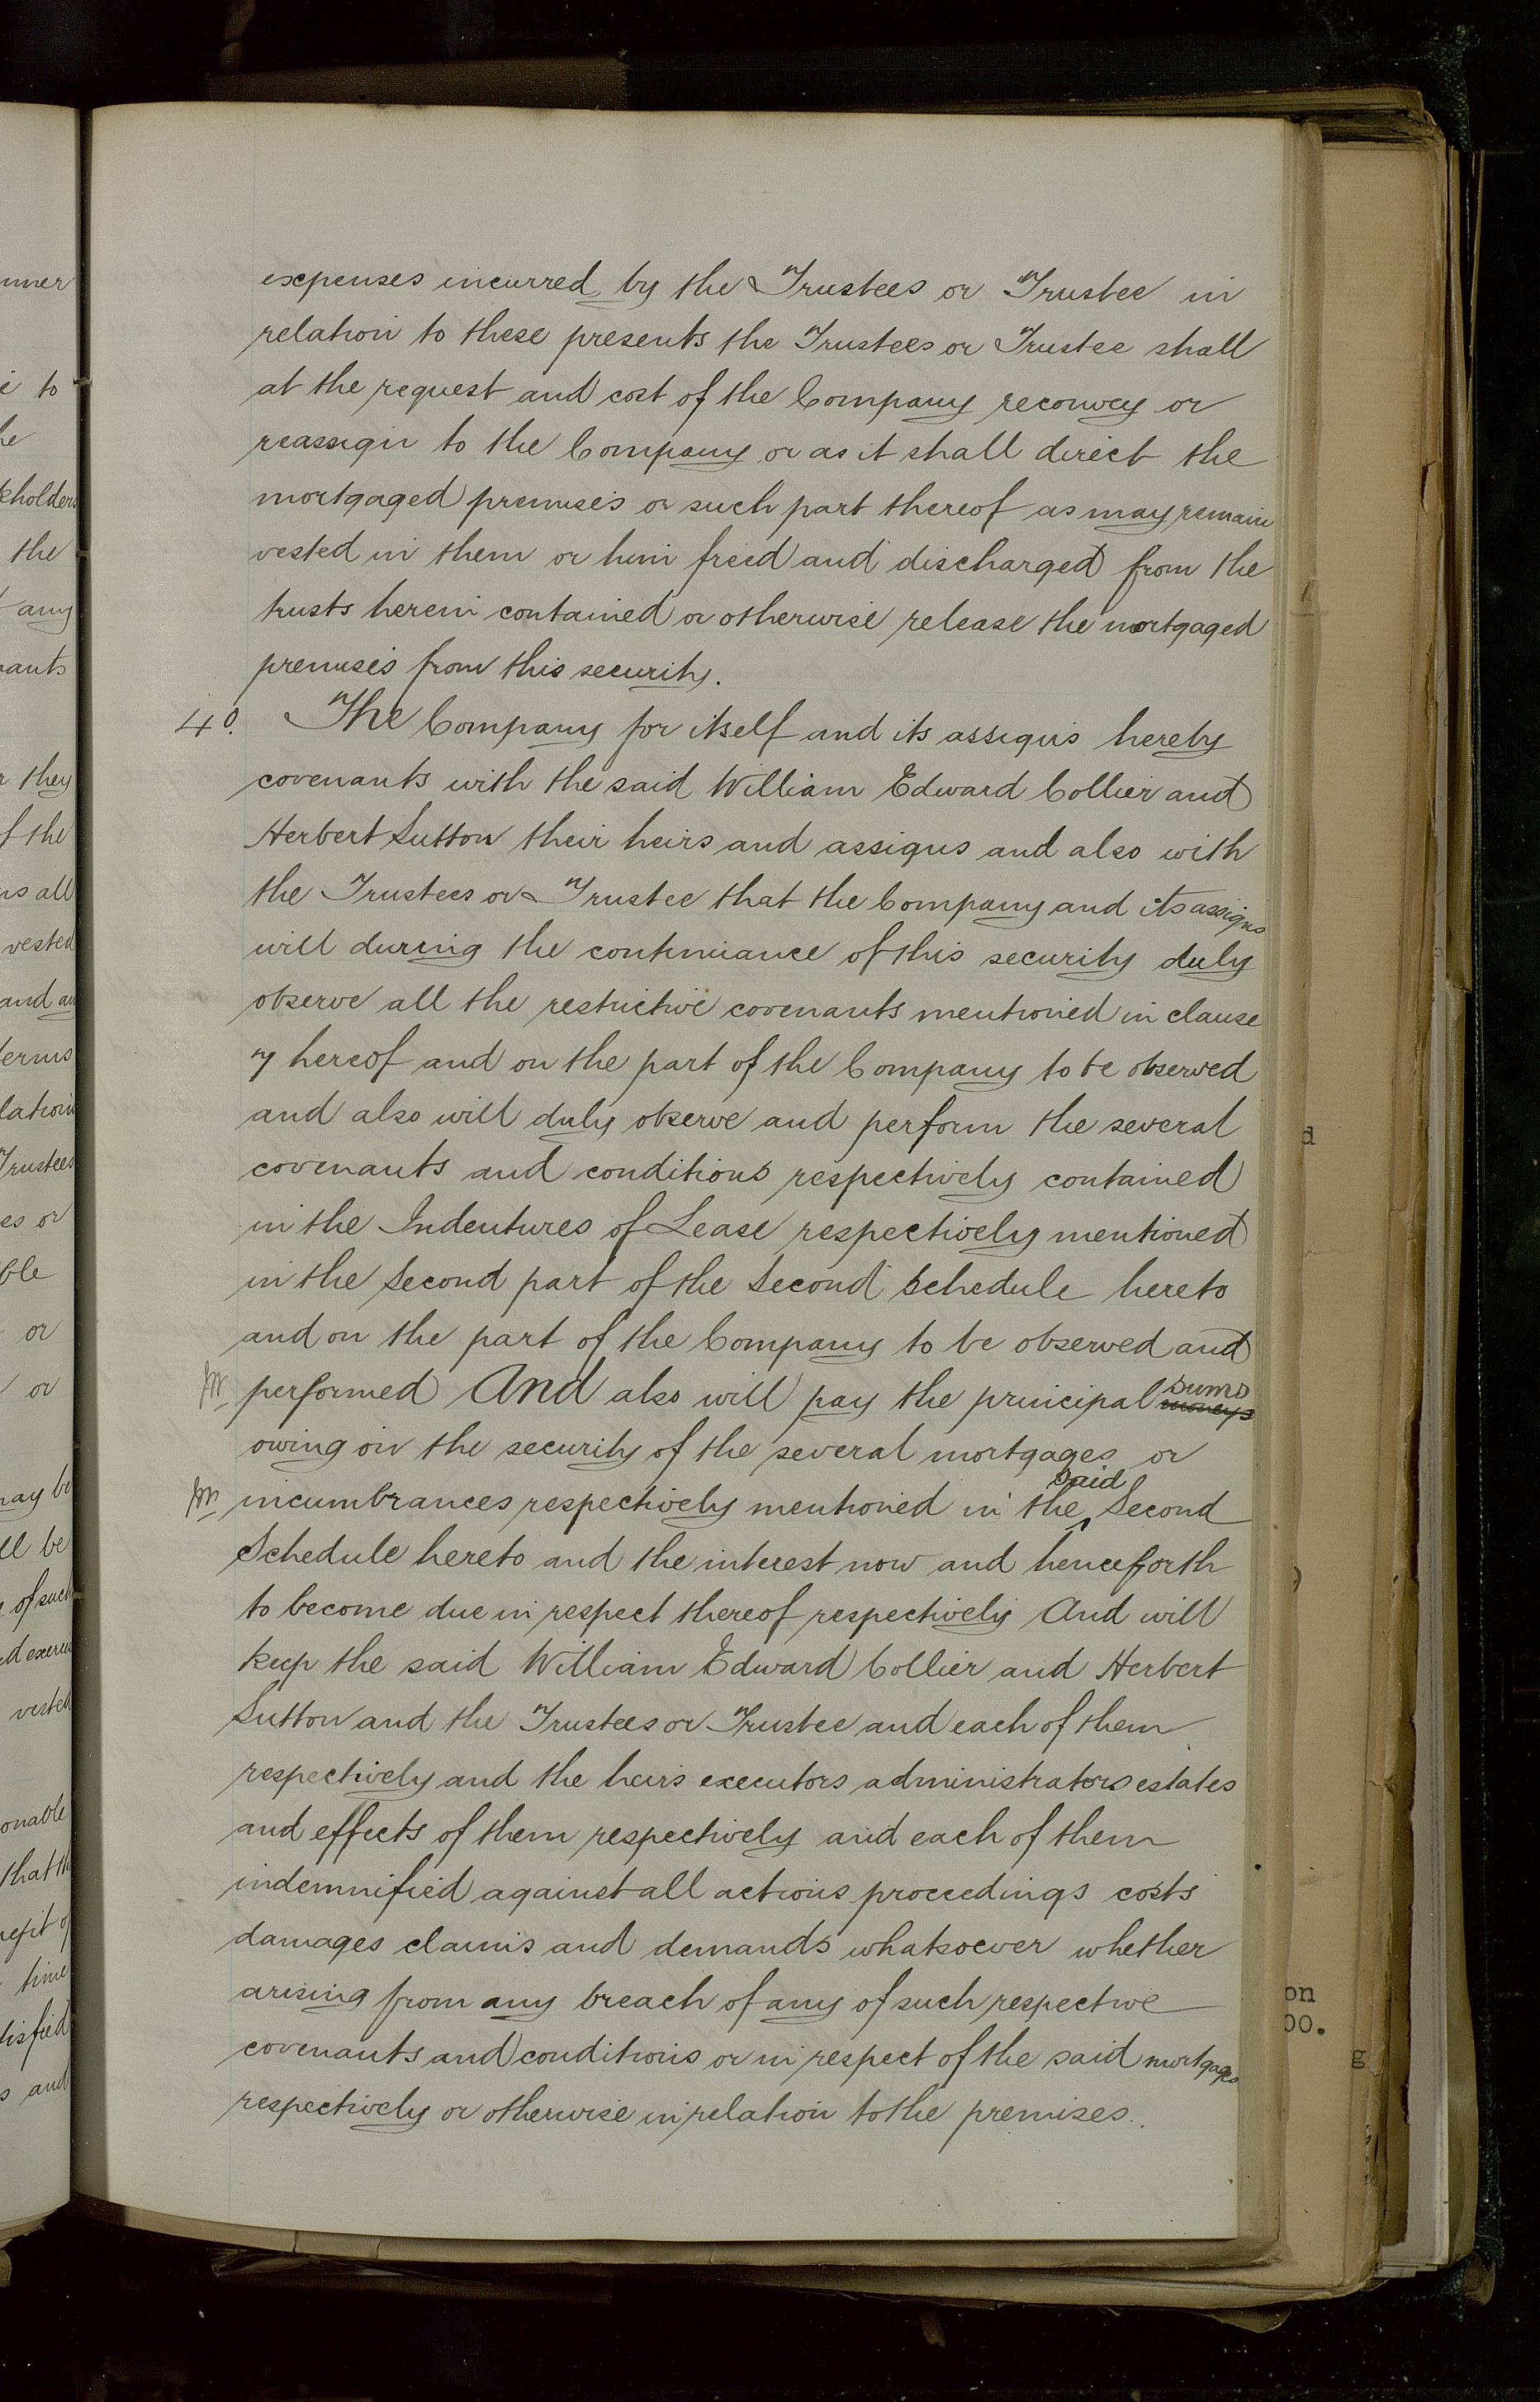 expenses incurred by the Trustees or Trustee in
relation to these presents the Trustees or Trustee shall
at the request and cost of the Company reconvey or
reassign to the Company or as it shall direct the
mortgaged premises or such part thereof as may remain
vested in them or him freed and discharged from the
trusts herein contained or otherwise release the mortgaged
premises from this security.
40. The Company for itself and its assigns hereby
covenants with the said William Edward Collier and
Herbert Sutton their heirs and assigns and also with
the Trustees or Trustee that the Company and its assigns
will during the continuance of this security duly
observe all the restrictive covenants mentioned in clause
7 hereof and on the part of the Company to be observed
and also will duly observe and perform the several
covenants and conditions respectively contained
in the Indentures of Lease respectively mentioned
in the Second part of the Second Schedule hereto
and on the part of the Company to be observed and
performed And also will pay the principal sums moneys
owing on the security of the several mortgages or
incumbrances respectively mentioned in the said Second
Schedule hereto and the interest now and henceforth
to become due in respect thereof respectively And will
keep the said William Edward Collier and Herbert
Sutton and the Trustees or Trustee and each of them
respectively and the heirs executors administrators estates
and effects of them respectively and each of them
indemnified against all actions proceedings costs
damages claims and demands whatsoever whether
arising from any breach of any of such respective
covenants and conditions or in respect of the said mortgages
respectively or otherwise in relation to the premises.